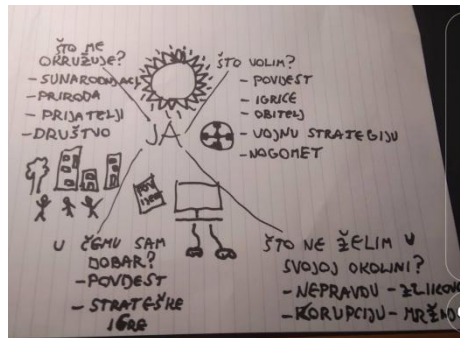 ŠTO ME
OKRUŽUJE?
- SUNARODNJACI
- PRIRODA
- PRIJATELJI
- DRUŠTVO
ŠTO VOLIM?
- POVIJEST
- IGRICE
- OBITELJ
- VOJNU STRATEGIJU
- NOGOMET
JA
U ČEMU SAM
DOBAR?
- POVIJEST
- STRATEŠKE
IGRE
ŠTO NE ŽELIM U
SVOJOJ OKOLINI?
- NEPRAVDU
- KORUPCIJU